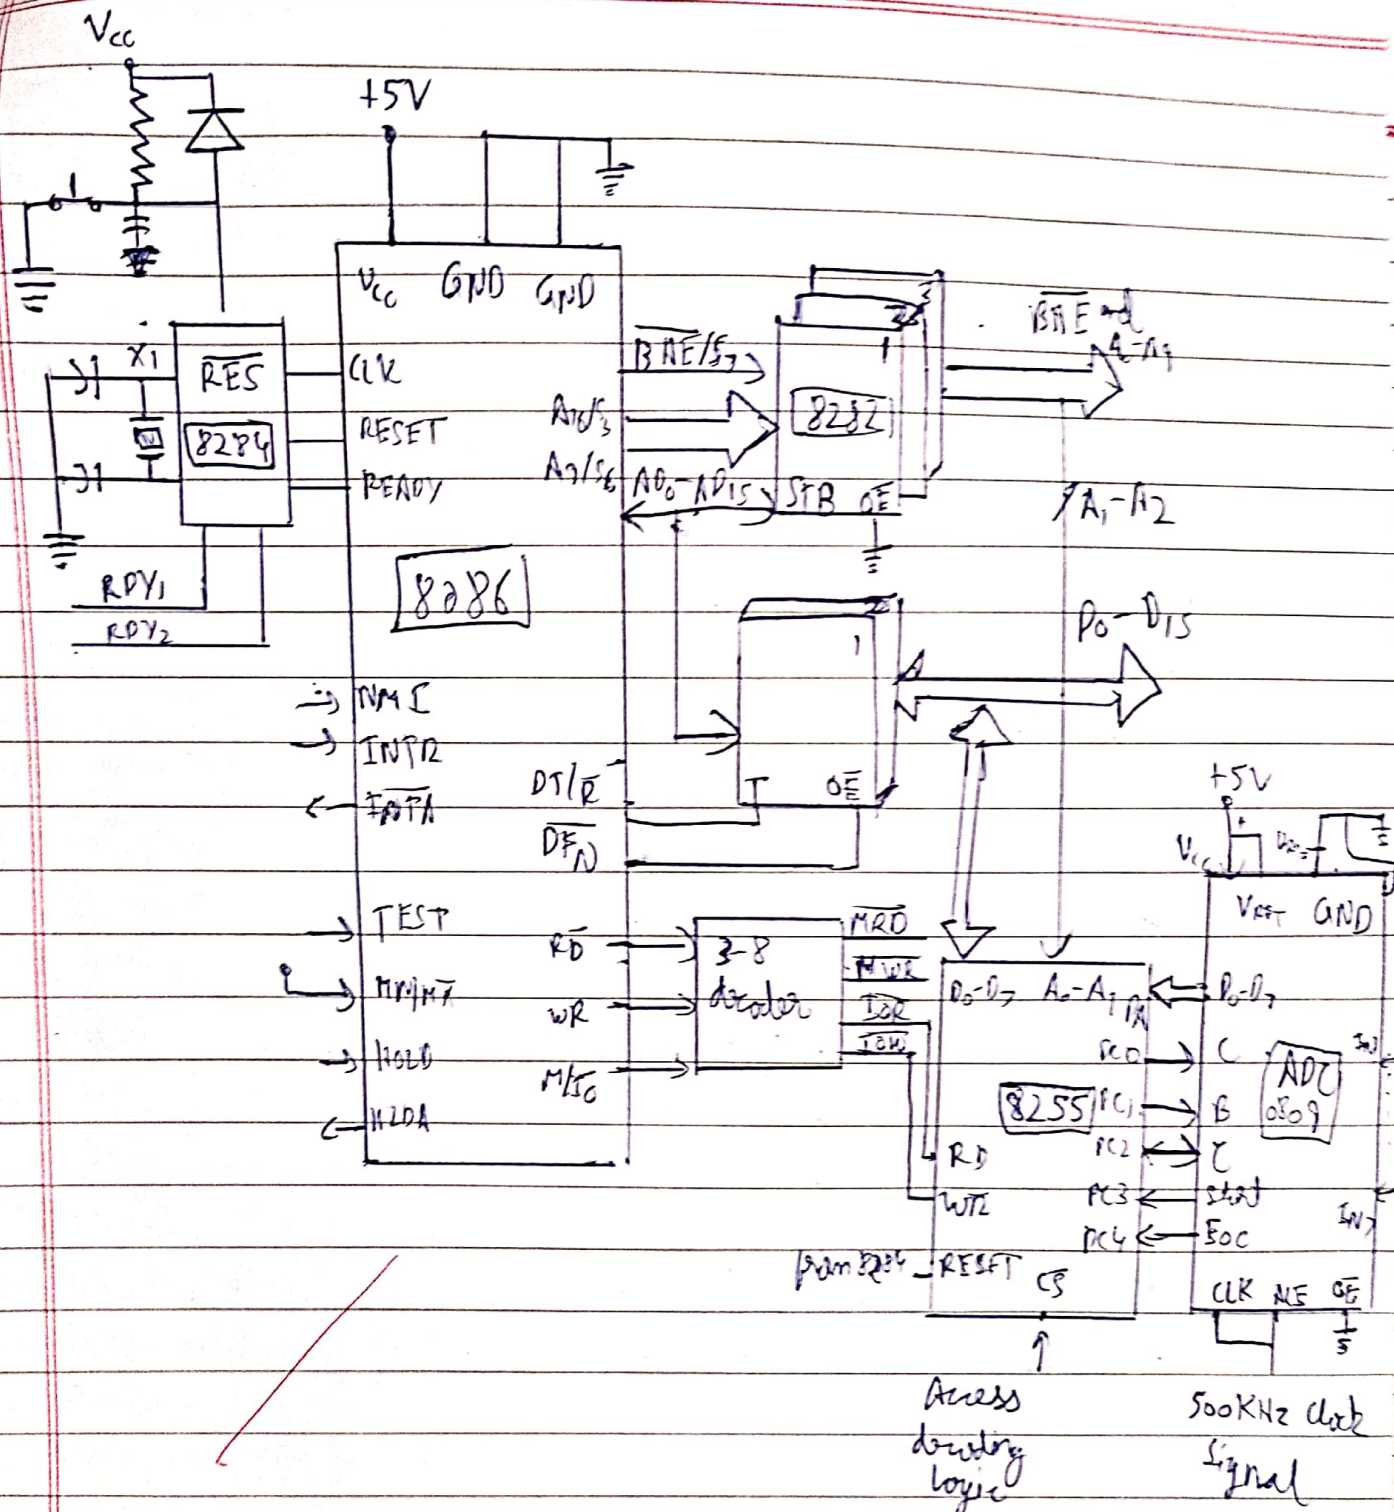 Vcc
+5V
Vcc GND GND
X1
RES
8284
CLK
RESET
READY
RDY1
RDY2
8086
NMI
INTR
INTA
TEST
MN/MX
HOLD
HLDA
BHE/S7
A16/S3
A19/S6
AD0-AD15
DT/R
DEN
RD
WR
M/IO
3
2
1
8282
STB OE
BHE and
A1-A2
2
1
T OE
D0-D15
3-8
decoder
MRD
MWR
IOR
IOW
D0-D7 A0-A1
PA
PC0
8255 PC1
PC2
PC3
PC4
RD
WR
from 8284 RESET
CS
Access
decoding
logic
+5V
Vcc
VREF GND
D0-D7
C
B
C
start
EOC
ADC
0809
IN7
CLK ALE OE
500KHz clock
signal